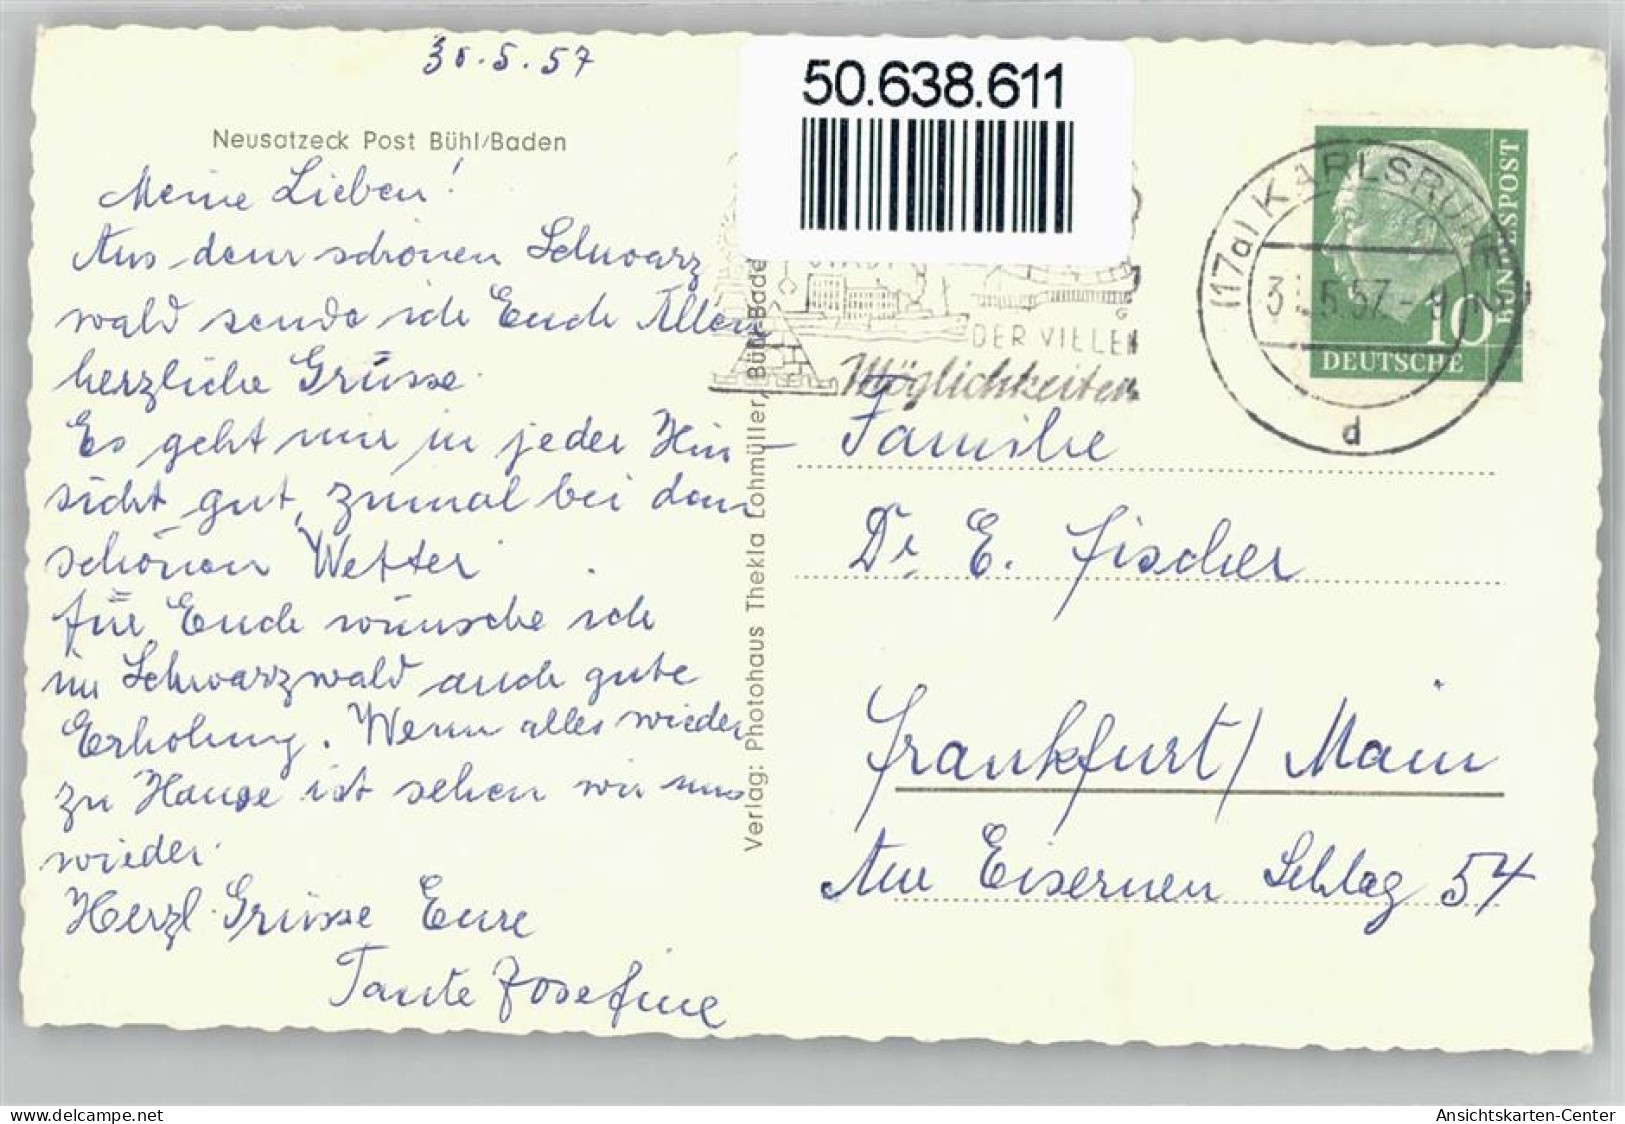 30.5.57
50.638.611
Neusatzeck Post Bühl/Baden
Meine Lieben!
Aus dem schönen Schwarz
wald sende ich Euch Allen
herzliche Grüsse.
Es geht mir in jeder Hin-
sicht gut, zumal bei dem
schönen Wetter.
für Euch wünsche ich
im Schwarzwald auch gute
Erholung. Wenn alles wieder
zu Hause ist sehen wir uns
wieder.
Herzl. Grüsse Eure
Tante Josefine
Verlag: Photohaus Thekla Lohmüller, Bühl-Bade
DER VIELEN
Möglichkeiten
(17a) KARLSRUHE 2
31.5.57.-9
d
10
DEUTSCHE
BUNDESPOST
Familie
Dr. E. Fischer
Frankfurt/Main
Am Eisernen Schlag 54
delcampe.net
Ansichtskarten-Center